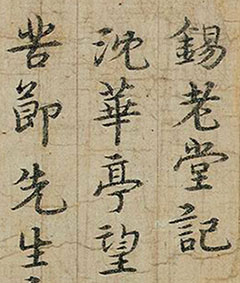 錫老堂記
沈華亭望
苦節先生